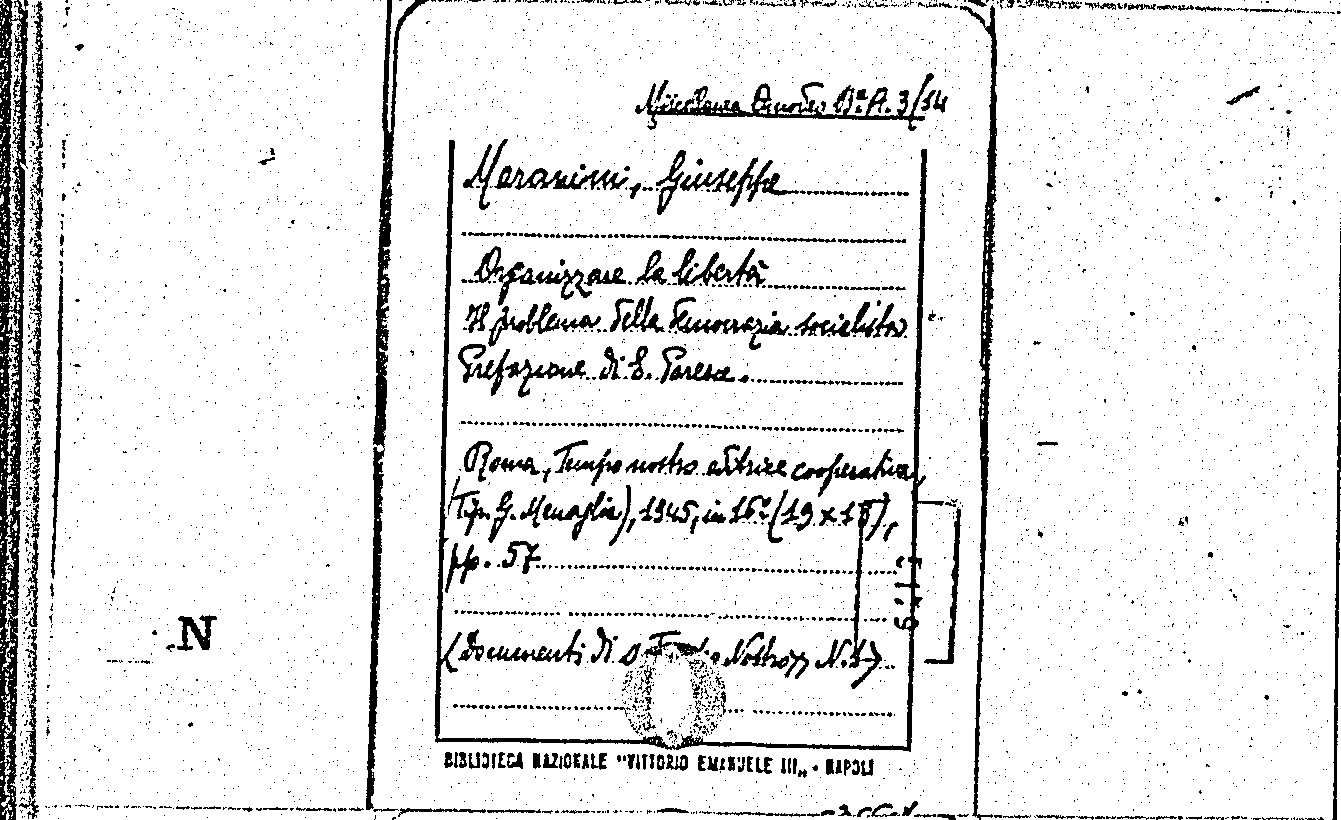 Miscellanea Omodeo Bª. A. 3/14
Maranini, Giuseppe
Organizzare la libertà
Il problema della democrazia socialista
Prefazione di E. Paresce.
Roma, Tempo nostro editrice cooperativa,
(Tip. G. Menaglia), 1945, in 16º (19 x 13),
pp. 57
(Documenti di Nostro» N. 1)
N
BIBLIOTECA NAZIONALE "VITTORIO EMANUELE III„ - NAPOLI